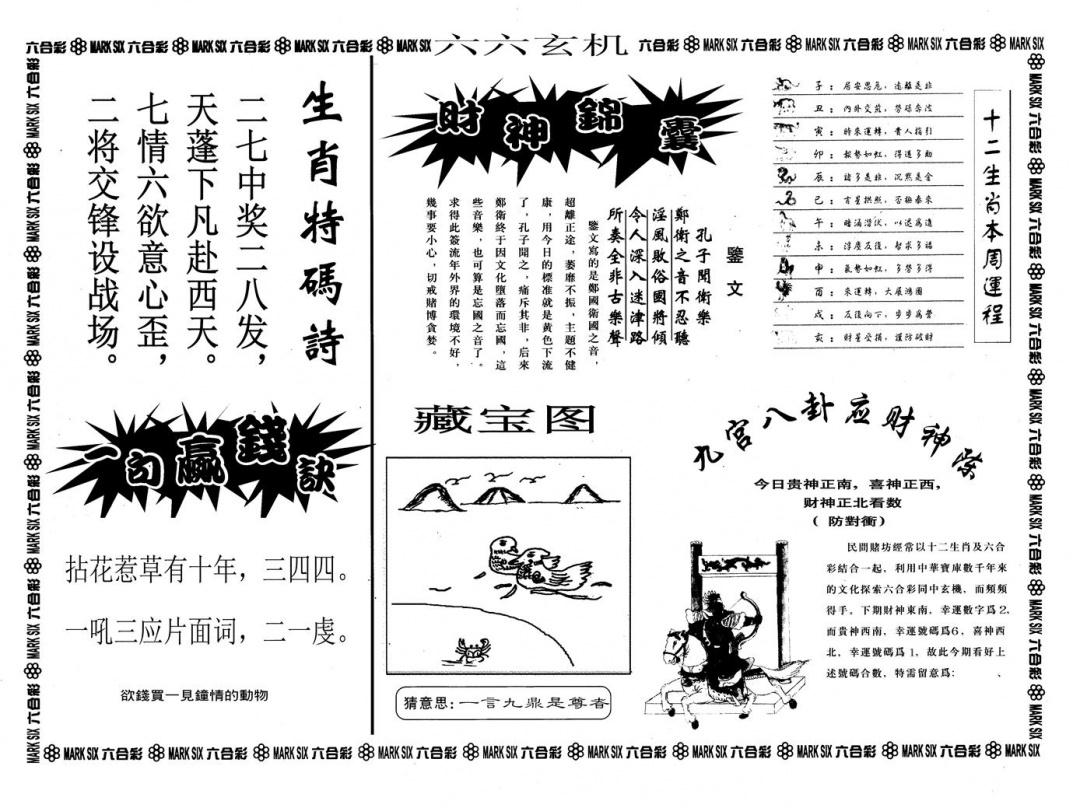 六合彩 MARK SIX 六合彩 MARK SIX 六合彩 MARK SIX 六合彩 MARK SIX 六六玄机 六合彩 MARK SIX 六合彩 MARK SIX 六合彩 MARK SIX 六合彩 MARK SIX
生肖特碼詩
二七中奖二八发，
天蓬下凡赴西天。
七情六欲意心歪，
二将交锋设战场。
一句贏錢訣
拈花惹草有十年，三四四。
一吼三应片面词，二一虔。
欲錢買一見鐘情的動物
財神錦囊
鑒文
孔子聞衛樂
鄭衛之音不忍聽
淫風敗俗國將傾
令人深入迷津路
所奏全非古樂聲
鑒文寫的是鄭國衛國之音，
超離正途，萎靡不振，主題不健
康，用今日的標准就是黄色下流
了，孔子聞之，痛斥其非，后來
鄭衛終于因文化墮落而忘國，這
些音樂，也可算是忘國之音了。
求得此簽流年外界的環境不好，
幾事要小心，切戒賭博貪婪。
十二生肖本周運程
子：居安思危，遠離是非
丑：内外交煎，勞碌奔波
寅：時來運轉，貴人指引
卯：報勢如虹，得道多助
辰：諸多是非，沉默是金
巳：吉星拱照，否極泰來
午：暗涌潜伏，以退爲進
未：浮塵反復，智求多福
申：氣勢如虹，多勞多得
酉：來運轉，大展鴻圖
戌：反復向下，步步爲營
亥：財星受損，謹防破財
藏宝图
猜意思：一言九鼎是尊者
九宫八卦应财神
今日贵神正南，喜神正西，
财神正北看数
（防對衝）
民間賭坊經常以十二生肖及六合
彩結合一起，利用中華寶庫數千年來
的文化探索六合彩同中玄機，而頻頻
得手。下期財神東南，幸運數字爲2，
而貴神西南，幸運號碼爲6，喜神西
北，幸運號碼爲1，故此今期看好上
述號碼合數，特需留意爲：、
MARK SIX 六合彩 MARK SIX 六合彩 MARK SIX 六合彩 MARK SIX 六合彩 MARK SIX 六合彩 MARK SIX 六合彩 MARK SIX 六合彩 MARK SIX 六合彩 MARK SIX 六合彩 MARK SIX